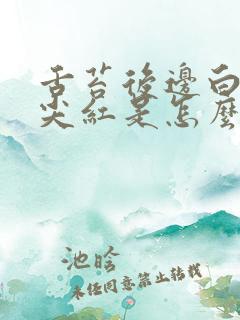 舌苔後邊白
尖紅是怎麼
池晗
未經同意禁止轉載